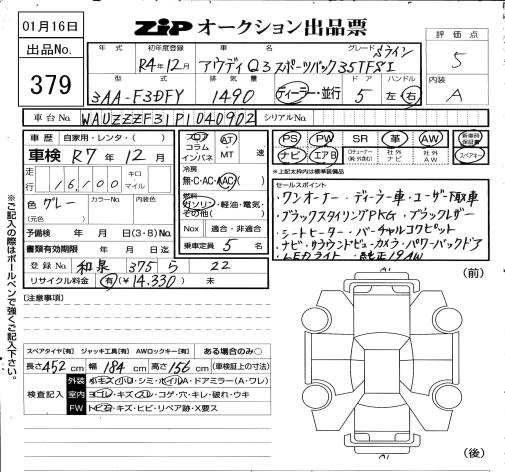 01月16日
ZIP オークション出品票
出品No.
379
年式
初年度登録
車名
グレード
評価点
R4年12月
アウディQ3スポーツバック35TFSI
Sライン
5
型式
排気量
ドア
ハンドル
内装
3AA-F3DFY
1490
ディーラー・並行
5
左・右
A
車台No.
WAUZZZF31P1040902
シリアルNo.
車歴
自家用・レンタ・( )
車検 R7年12月
走行
16,100
キロ
マイル
色 グレー
(元色 )
カラーNo.
内装色
予備検 年 月 日(3・8)No.
書類有効期限 年 月 日迄
登録No. 和泉 375 ら 22
リサイクル料金 有(¥14,330) 未
フロア
コラム
インパネ
AT
MT
速
冷房
無・C・AC・AAC( )
燃料
ガソリン・軽油・電気・
その他( )
Nox 適合・非適合
乗車定員 5 名
PS PW SR 革 AW 新車時保証書
ナビ エアB 社外ナビ 社外AW スペアキー
*上記太枠内は標準装備品
セールスポイント
・ワンオーナー・ディーラー車・ユーザー下取車
・ブラックスタイリングPKG・ブラックレザー
・シートヒーター・バーチャルコクピット
・ナビ・サラウンドビューカメラ・パワーバックドア
・LEDライト・純正19AW
[注意事項]
(前)
スペアタイヤ[有] ジャッキ工具[有] AWロックキー[有] ある場合のみ○
長さ452cm 幅184cm 高さ156cm (車検証上の寸法)
検査記入
外装 小キズ・凹・シミ・ホイルA・ドアミラー(A・ワレ)
室内 ヨゴレ・キズ・スレ・コゲ・穴・キレ・破れ・ウキ
FW トビ石・キズ・ヒビ・リペア跡・X要ス
(後)
※ご記入の際はボールペンで強くご記入下さい。